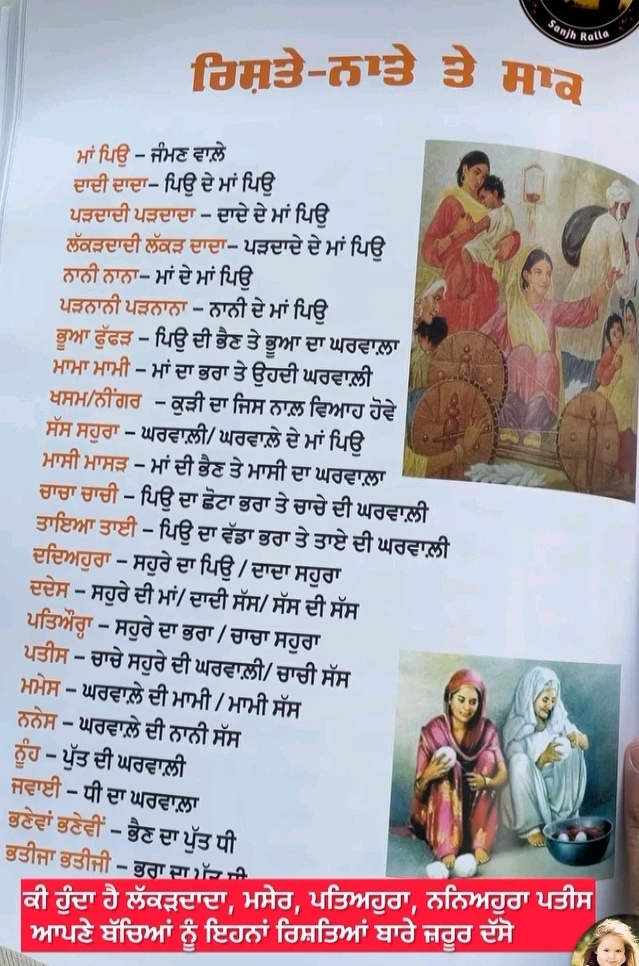 Sanjh Ralla
ਰਿਸ਼ਤੇ-ਨਾਤੇ ਤੇ ਸਾਕ
ਮਾਂ ਪਿਉ – ਜੰਮਣ ਵਾਲ਼ੇ
ਦਾਦੀ ਦਾਦਾ– ਪਿਉ ਦੇ ਮਾਂ ਪਿਉ
ਪੜਦਾਦੀ ਪੜਦਾਦਾ – ਦਾਦੇ ਦੇ ਮਾਂ ਪਿਉ
ਲੱਕੜਦਾਦੀ ਲੱਕੜ ਦਾਦਾ– ਪੜਦਾਦੇ ਦੇ ਮਾਂ ਪਿਉ
ਨਾਨੀ ਨਾਨਾ– ਮਾਂ ਦੇ ਮਾਂ ਪਿਉ
ਪੜਨਾਨੀ ਪੜਨਾਨਾ – ਨਾਨੀ ਦੇ ਮਾਂ ਪਿਉ
ਭੂਆ ਫੁੱਫੜ – ਪਿਉ ਦੀ ਭੈਣ ਤੇ ਭੂਆ ਦਾ ਘਰਵਾਲ਼ਾ
ਮਾਮਾ ਮਾਮੀ – ਮਾਂ ਦਾ ਭਰਾ ਤੇ ਉਹਦੀ ਘਰਵਾਲ਼ੀ
ਖਸਮ/ਨੀਂਗਰ – ਕੁੜੀ ਦਾ ਜਿਸ ਨਾਲ਼ ਵਿਆਹ ਹੋਵੇ
ਸੱਸ ਸਹੁਰਾ – ਘਰਵਾਲ਼ੀ/ ਘਰਵਾਲ਼ੇ ਦੇ ਮਾਂ ਪਿਉ
ਮਾਸੀ ਮਾਸੜ – ਮਾਂ ਦੀ ਭੈਣ ਤੇ ਮਾਸੀ ਦਾ ਘਰਵਾਲ਼ਾ
ਚਾਚਾ ਚਾਚੀ – ਪਿਉ ਦਾ ਛੋਟਾ ਭਰਾ ਤੇ ਚਾਚੇ ਦੀ ਘਰਵਾਲ਼ੀ
ਤਾਇਆ ਤਾਈ – ਪਿਉ ਦਾ ਵੱਡਾ ਭਰਾ ਤੇ ਤਾਏ ਦੀ ਘਰਵਾਲ਼ੀ
ਦਦਿਅਹੁਰਾ – ਸਹੁਰੇ ਦਾ ਪਿਉ / ਦਾਦਾ ਸਹੁਰਾ
ਦਦੇਸ – ਸਹੁਰੇ ਦੀ ਮਾਂ/ ਦਾਦੀ ਸੱਸ/ ਸੱਸ ਦੀ ਸੱਸ
ਪਤਿਔਰ੍ਹਾ – ਸਹੁਰੇ ਦਾ ਭਰਾ / ਚਾਚਾ ਸਹੁਰਾ
ਪਤੀਸ – ਚਾਚੇ ਸਹੁਰੇ ਦੀ ਘਰਵਾਲ਼ੀ/ ਚਾਚੀ ਸੱਸ
ਮਮੇਸ – ਘਰਵਾਲ਼ੇ ਦੀ ਮਾਮੀ / ਮਾਮੀ ਸੱਸ
ਨਨੇਸ – ਘਰਵਾਲ਼ੇ ਦੀ ਨਾਨੀ ਸੱਸ
ਨੂੰਹ – ਪੁੱਤ ਦੀ ਘਰਵਾਲ਼ੀ
ਜਵਾਈ – ਧੀ ਦਾ ਘਰਵਾਲ਼ਾ
ਭਣੇਵਾਂ ਭਣੇਵੀਂ – ਭੈਣ ਦਾ ਪੁੱਤ ਧੀ
ਭਤੀਜਾ ਭਤੀਜੀ – ਭਰਾ ਦਾ ਪੁੱਤ ਧੀ
ਕੀ ਹੁੰਦਾ ਹੈ ਲੱਕੜਦਾਦਾ, ਮਸੇਰ, ਪਤਿਅਹੁਰਾ, ਨਨਿਅਹੁਰਾ ਪਤੀਸ
ਆਪਣੇ ਬੱਚਿਆਂ ਨੂੰ ਇਹਨਾਂ ਰਿਸ਼ਤਿਆਂ ਬਾਰੇ ਜ਼ਰੂਰ ਦੱਸੋ